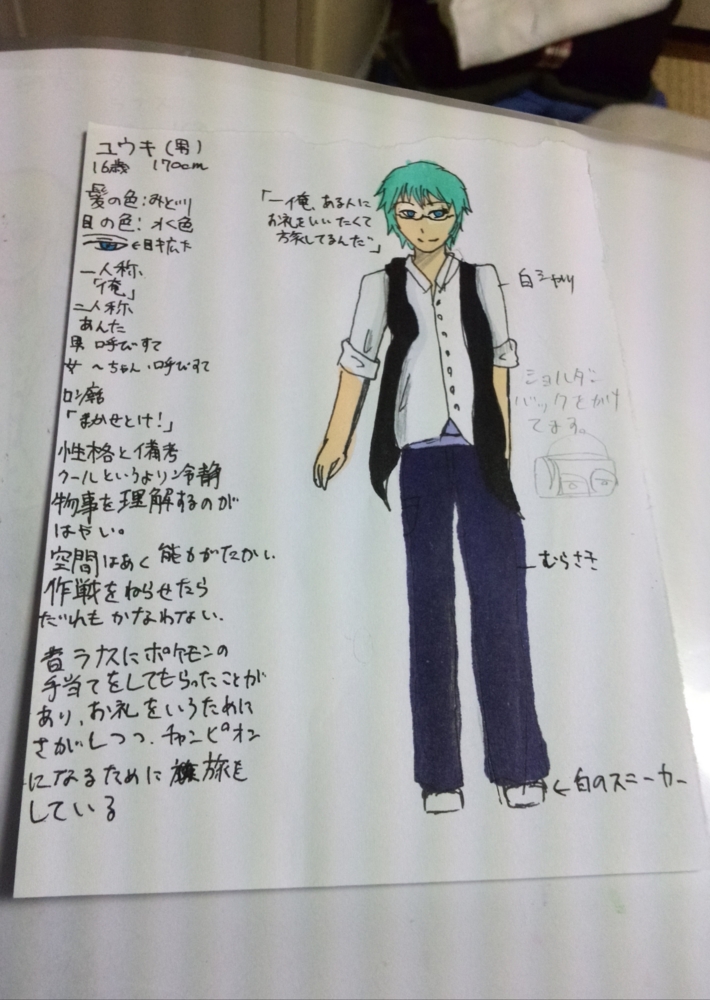 ユウキ(男)
16歳 170cm
髪の色:みどり
目の色: 水色
一人称
「俺」
二人称
あんた
男 呼びすて
女 〜ちゃん、呼びすて
口ぐせ
「まかせとけ!」
性格と備考
クールというより冷静
物事を理解するのが
はやい。
空間はあく能力がたかい、
作戦をねらせたら
だれもかなわない.
昔ラナスにポケモンの
手当てをしてもらったことが
あり、お礼をいうために
さがしつつ、チャンピオン
になるために旅を
している
「―俺、ある人に
お礼をいいたくて
旅してるんだ」
白シャツ
ショルダー
バックをかけ
てます。
むらさき
←白のスニーカー